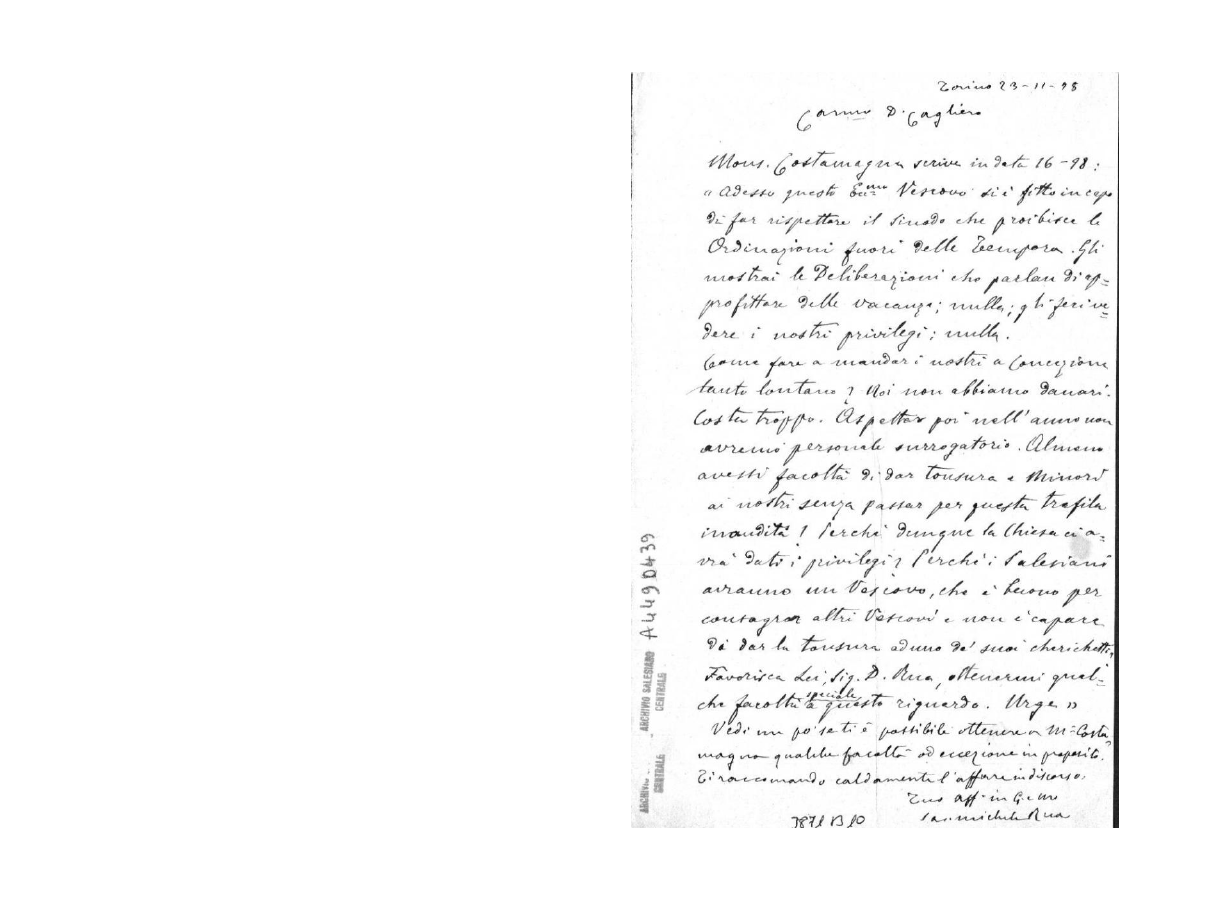 Torino 23-11-98
Carmo D. Cagliero
Mons. Costamagna scrive in data 16-98:
"Adesso questo Ecc.mo Vescovo si è fitto in capo
di far rispettare il Sinodo che proibisce le
Ordinazioni fuori delle Tempora. Gli
mostrai le Deliberazioni che parlan di ap=
profittare delle vacanze; nulla; gli feci ve=
dere i nostri privilegi; nulla.
Come fare a mandar i nostri a Concezione
tanto lontano? Noi non abbiamo danari.
Costa troppo. Aspettar poi nell'anno non
avremo personale surrogatorio. Almeno
avessi facoltà di dar tonsura e Minori
ai nostri senza passar per questa trafila
inaudita! Perchè dunque la Chiesa ci a=
vrà dati i privilegi? Perchè i Salesiani
avranno un Vescovo, che è buono per
consagrar altri Vescovi e non è capace
di dar la tonsura ad uno de' suoi cherichetti,
Favorisca Lei, Sig. D. Rua, ottenermi qual=
che facoltà speciale a questo riguardo. Urge"
Vedi un po' se ti è possibile ottenere a Mr Costa=
magna qualche facoltà od eccezione in proposito.
Ti raccomando caldamente l'affare in discorso.
Tuo aff. in G. e M.
Sac. Michele Rua
3871 B 10
A4490439
ARCHIVIO SALESIANO
CENTRALE
ARCHIVIO
CENTRALE